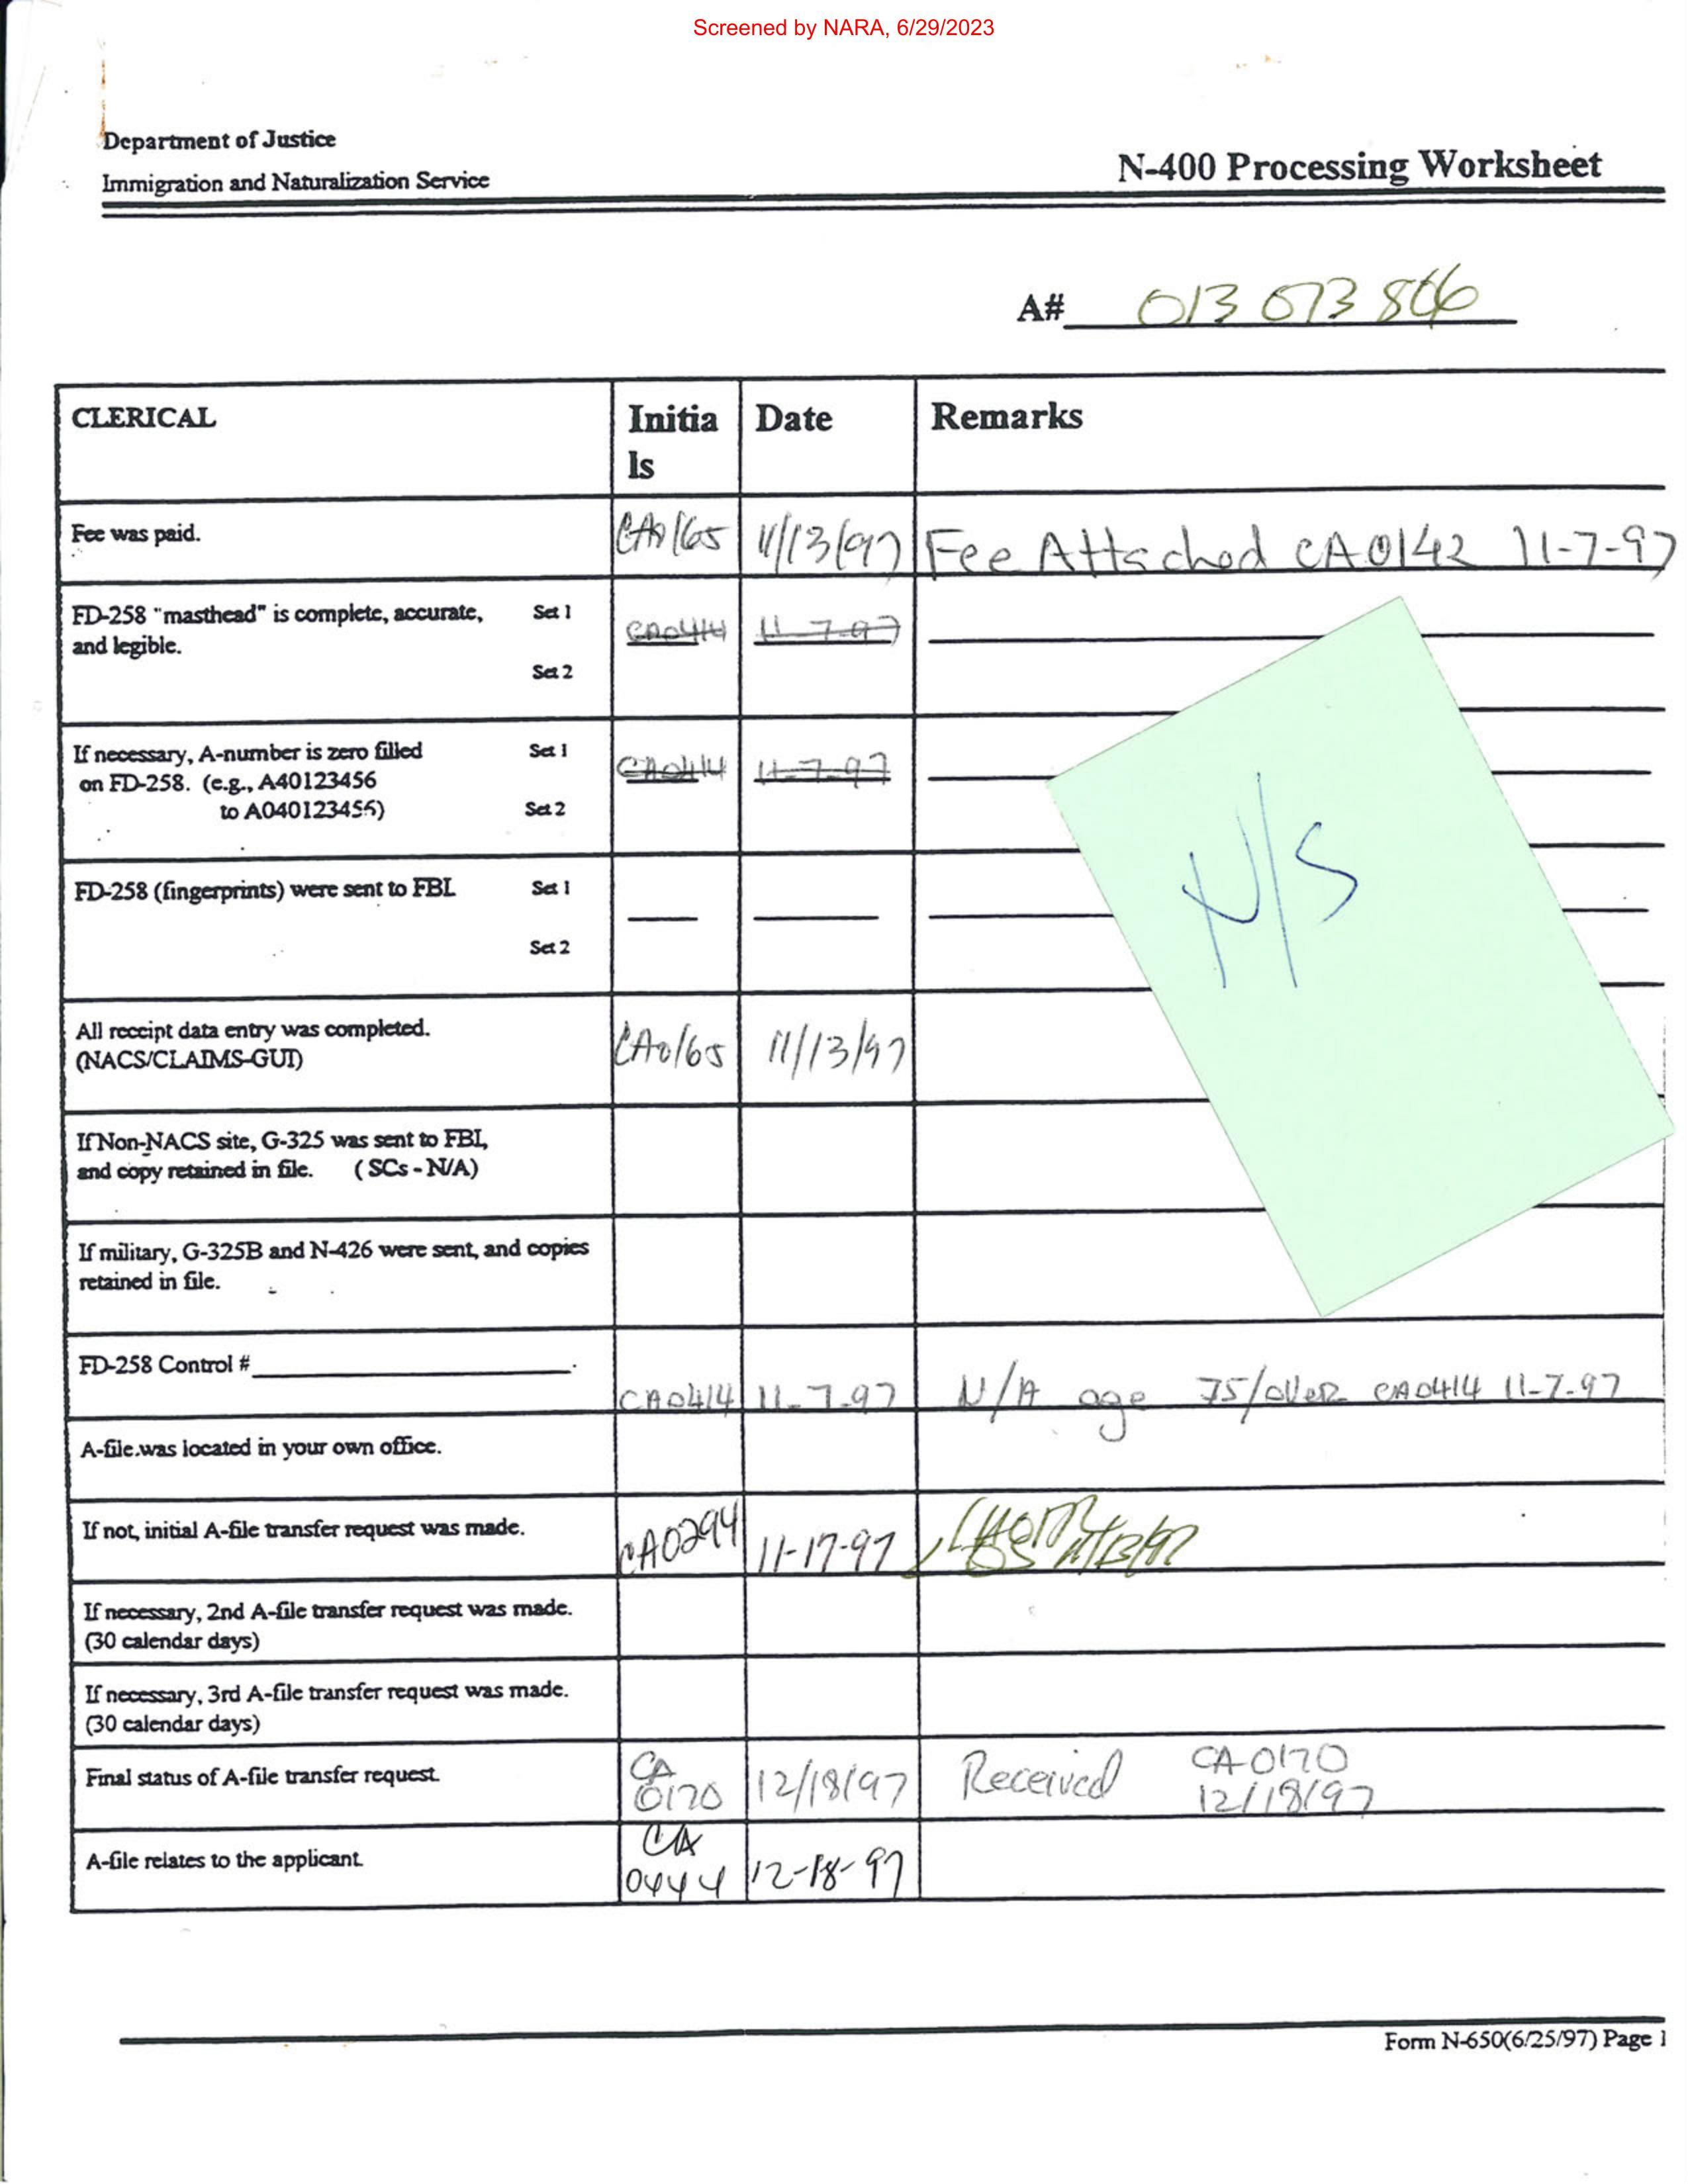 Screened by NARA, 6/29/2023
Department of Justice
Immigration and Naturalization Service
N-400 Processing Worksheet
A# 013 073 806
CLERICAL
Initia
ls
Date
Remarks
Fee was paid.
CA0165
11/13/97
Fee Attached CA0142 11-7-97
FD-258 "masthead" is complete, accurate,
and legible.
Set 1
Set 2
CA0414
11-7-97
If necessary, A-number is zero filled
on FD-258. (e.g., A40123456
to A040123456)
Set 1
Set 2
CA0414
11-7-97
N/S
FD-258 (fingerprints) were sent to FBI.
Set 1
Set 2
All receipt data entry was completed.
(NACS/CLAIMS-GUI)
CA0165
11/13/97
If Non-NACS site, G-325 was sent to FBI,
and copy retained in file. (SCs - N/A)
If military, G-325B and N-426 were sent, and copies
retained in file.
FD-258 Control #
CA0414
11-7-97
N/A age 75/over CA0414 11-7-97
A-file was located in your own office.
If not, initial A-file transfer request was made.
CA0294
11-17-97
If necessary, 2nd A-file transfer request was made.
(30 calendar days)
If necessary, 3rd A-file transfer request was made.
(30 calendar days)
Final status of A-file transfer request.
CA
0170
12/18/97
Received
CA-0170
12/18/97
A-file relates to the applicant.
CA
0444
12-18-97
Form N-650(6/25/97) Page 1